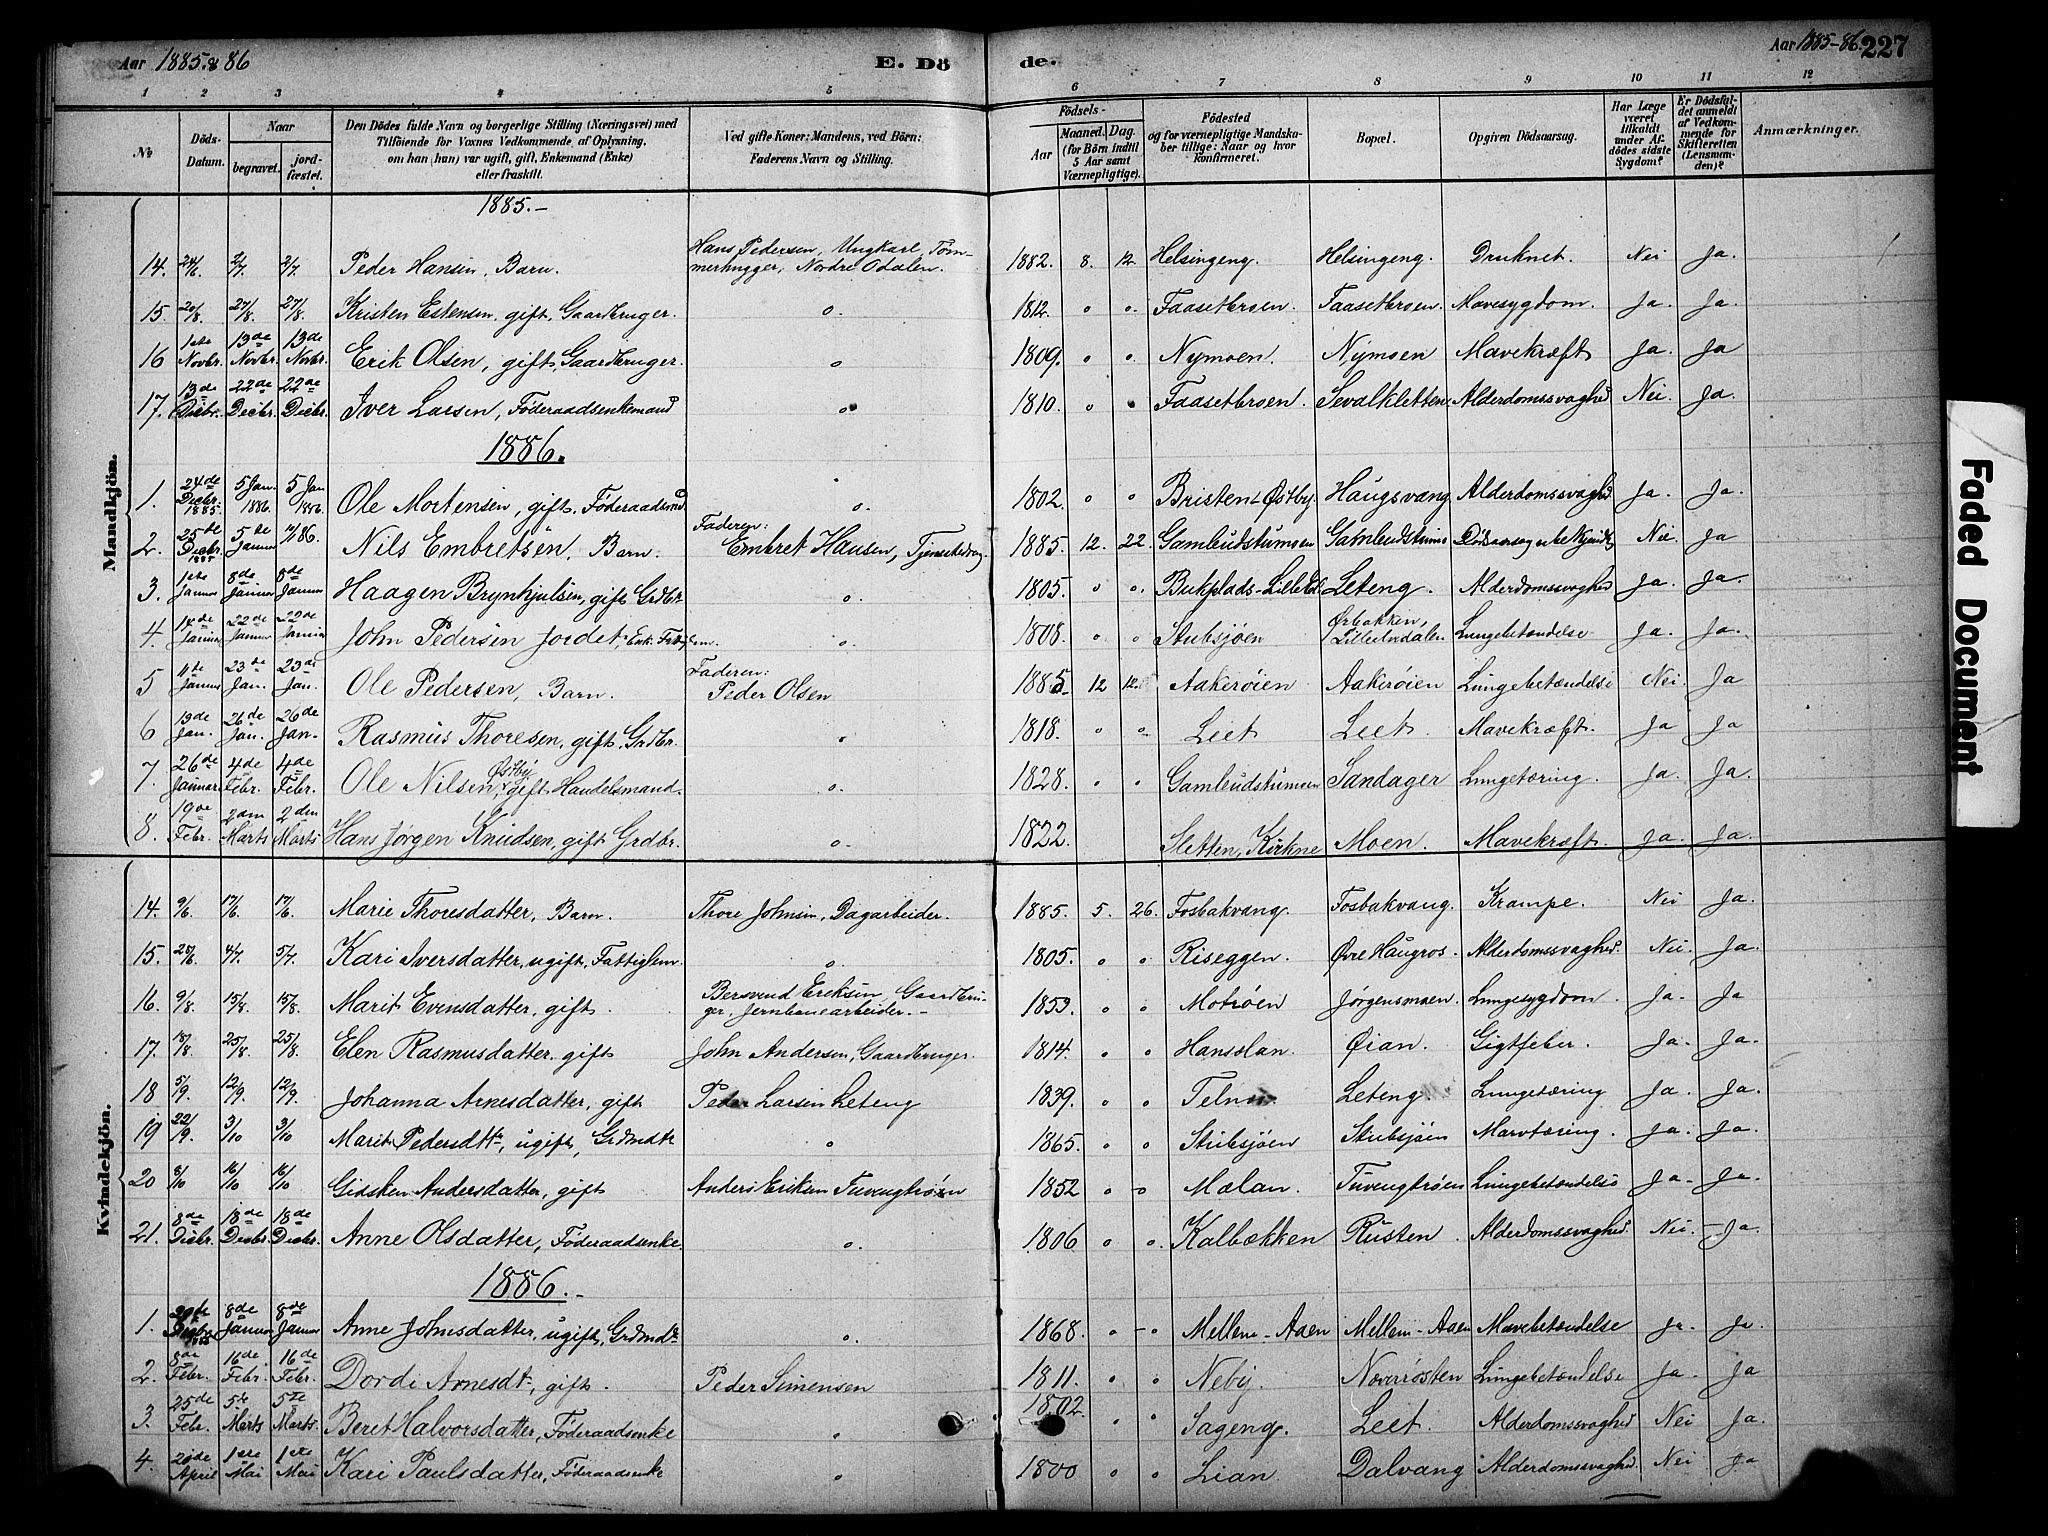 Aar 1885 & 86
E. Dö
de.
Aar 1885-86
227
1 2 3 4 5 6 7 8 9 10 11 12
No
Döds-Datum.
Naar
begravet.
jord-fæstet.
Den Dödes fulde Navn og borgerlige Stilling (Næringsvei) med
Tilföiende for Voxnes Vedkommende, af Oplysning,
om han (hun) var ugift, gift, Enkemand (Enke)
eller fraskilt.
Ved gifte Koner: Mandens, ved Börn:
Faderens Navn og Stilling.
Födsels-
Aar
Maaned. Dag.
(for Börn indtil
5 Aar samt
Værnepligtige).
Födested
og for værnepligtige Mandska-
ber tillige: Naar og hvor
konfirmeret.
Bopæl.
Opgiven Dödsaarsag.
Har Læge
været
tilkaldt
under Af-
dödes sidste
Sygdom?
Er Dödsfal-
det anmeldt
af Vedkom-
mende for
Skifteretten
(Lensman-
den)?
Anmærkninger.
Mandkjön.
1885.-
14. 24/6. 2/7. 2/7. Peder Hansen, Barn. Hans Pedersen, Ungkarl, Töm-
merhugger, Nordre Odalen. 1882. 8. 12. Helsingeng. Helsingeng. Druknet. Nei Ja.
15. 20/8. 27/8. 27/8. Kristen Estensen, gift, Gaardbruger. o. 1812. o o. Faasetbroen. Faasetbroen. Mavesygdom. Ja. Ja.
16 1ste Novbr. 13de Novbr. 13de Novbr. Erik Olsen, gift, Gaardbruger. o 1809. o o. Nymoen. Nymoen Mavekræft Ja. Ja
17. 13de Decbr. 22de Decbr. 22de Decbr. Iver Larsen, Föderaadsenkemand o 1810. o o Faasetbroen. Sevalkletten. Alderdomssvaghed Nei Ja.
1886.
1. 24de Decbr. 1885. 5 Jan. 1886. 5 Jan 1886. Ole Mortensen, gift, Föderaadsmd o. 1802. o o Bristen-Østby Haugsvang Alderdomssvaghed. Ja. Ja.
2. 25de Decbr. 1885 5te Januar Nils Embretsen, Barn. Faderen:
Embret Hansen, 1885. 12. 22. Nei Ja
3. 1ste Januar 8de Januar 8de Januar Haagen Brynhjulsen, gift Grdbr o. 1805. o o. Leteng. Alderdomssvaghed Ja. Ja.
4. 14de Januar 22de Januar 22de Januar John Pedersen Jordet, o. 1808. o o Stubsjøen Ørbakken,
Lilleelvdalen Lungebetændelse Ja. Ja.
5 11te Januar 23de Jan. 23de Jan. Ole Pedersen, Barn. Faderen:
Peder Olsen 1885 12 12. Aakerøien Aakerøien Lungebetændelse Nei. Ja
6 19de Jan. 26de Jan. 26de Jan. Rasmus Thoresen, gift, Grdbr. o 1818. o o Leet Leet. Mavekræft. Ja Ja
7. 26de Januar 4de Febr. 4de Febr. Ole Nilsen Østby, gift Handelsmand. o. 1828. o o Sandager Lungetæring. Ja. Ja.
8. 19de Febr. 2den Marts 2den Marts Hans Jørgen Knudsen, gift Grdbr. o. 1822. Sletten, Kirkne Moen. Mavekræft. Ja. Ja.
Kvindekjön.
14. 9/6. 17/6. 17/6. Marie Thoresdatter, Barn. Thore Johnsen, Dagarbeider. 1885. 5. 26. Fosbakvang. Fosbakvang. Krampe. Nei Ja.
15. 25/6. 4/7. 5/7. Kari Iversdatter, ugift, Fattiglem. o. 1805. o o Riseggen. Øvre Haugros. Alderdomssvaghed. Nei Ja.
16. 9/8. 15/8. 15/8. Marit Evensdatter, gift. Bersvend Eriksen, Gaardbru-
ger, Jernbanearbeider.- 1853. o o. Motrøen Jørgensmoen. Lungesygdom. Ja. Ja
17. 18/8. 25/8. 25/8. Elen Rasmusdatter, gift John Andersen, Gaardbruger. 1814. o o Hansslan. Øian. Gigtfeber. Ja. Ja.
18 5/9. 12/9. 12/9. Johanna Arnesdatter, gift Peder Larsen Leteng 1839. o o Leteng Lungetæring Ja. Ja.
19 22/9. 3/10 3/10 Marit Pedersdtr, ugift, Grdmdtr o 1865. o o Stubsjøen Stubsjøen Marvtæring. Ja. Ja.
20 8/10 16/10 16/10 Gidsken Andersdatter, gift Anders Eriksen Tuvengtrøen 1852 o o Mælan. Tuvengtrøen Lungebetændelse Ja. Ja.
21. 8de Decbr. 18de Decbr. 18de Decbr. Anne Olsdatter, Föderaadsenke o. 1806 o o. Kalbækken Rusten. Alderdomssvaghed. Nei. Ja.
1886.-
1. 8de Januar 8de Januar Anne Johnsdatter, ugift, Grdmdtr o. 1868. o o Mellem-Aaen Mellem-Aaen Mavebetændelse Ja. Ja.
2. 8de Febr. 16de Febr. 16de Febr. Dordi Arnesdtr, gift. Peder Simensen 1811. o o Neby. Neverøsten Lungebetændelse Ja. Ja
3. 25de Febr. 5te Marts 5te Marts. Beret Halvorsdatter, Föderaadsenke o 1802. o o Sageng. Leet. Alderdomssvaghed Nei Ja.
4. 20de April 1ste Mai 1ste Mai Kari Paulsdatter, Föderaadsenke o 1800 o o Lian. Dalvang Alderdomssvaghed. Nei Ja
Faded Document